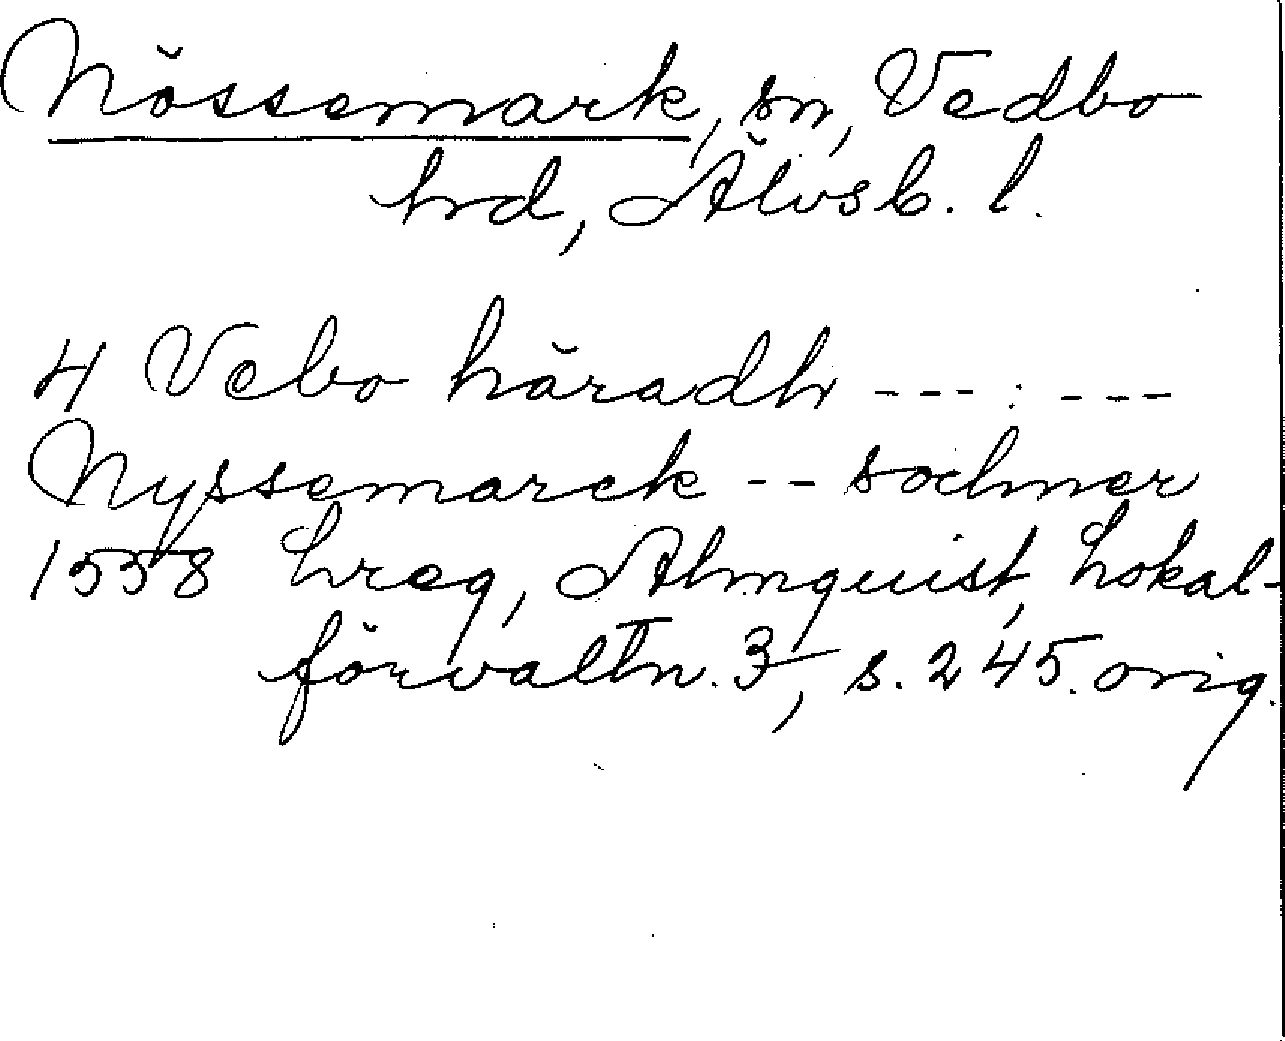 Nössemark, sn, Vedbo
hrd, Älvsb. l.
4 Vebo häradh --- : ---
Nyssemarck -- sochner
1558 hreg, Almquist, Lokal-
förvaltn. 3, s. 245. orig.